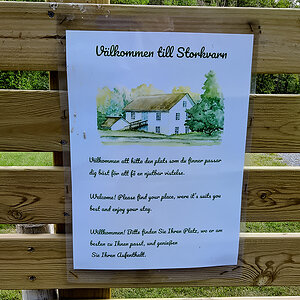 Välkommen till Storkvarn
Välkommen att hitta den plats som de finner passar
dig bäst för att få en njutbar vistelse.
Welcome! Please find your place, were it's suits you
best and enjoy your stay.
Willkommen! Bitte finden Sie Ihren Platz, wo er am
besten zu Ihnen passd, und genießen
Sie Ihren Aufenthalt.